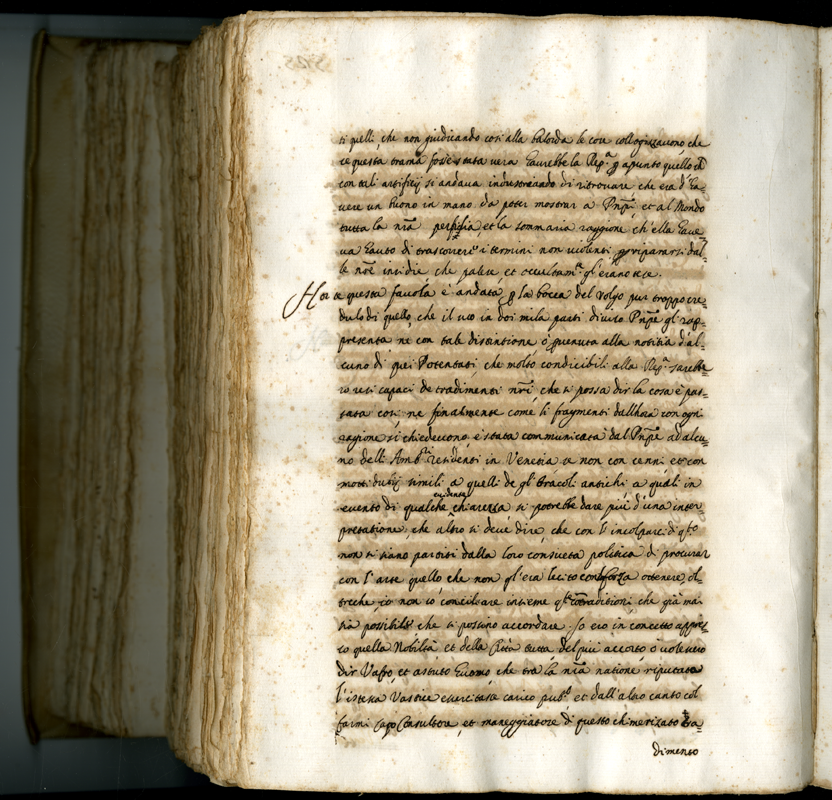 ti quelli, che non giudicando cosi alla balorda le cose colleggiavano, che
se questa trama fosse stata vera haurebbe la Rep.ca p apunto quello ch
con tali artificij si andava industriando di ritrovare, che era d'ha-
vere un buono in mano da poter mostrar a Pnpi, et al Mondo
tutta la nra perfidia, et la sommaria raggione ch'ella have-
va hauto di trascorrere i termini non violenti p ripararsi dal-
le nre insidie che palese, et occultam.te gl'erano tese.
Hor se questa favola è andata p la bocca del volgo pur troppo cre-
dulo di quello, che il suo in doi mila parti diviso Pnpe gl'rap-
presenta, ne con tale distintione è pvenuta alla notitia d'al-
cuno di quei Potentati, che molto condicibili alla Rep.ca sarebbe-
ro resi capaci de tradimenti nri, che si possa dir la cosa è pas-
sata cosi, ne finalmente come li fragmenti dall'hora con ogni
ragione si chiedevono, è stata communicata dal Pnpe ad alcu-
no delli Amb.ri residenti in Venetia se non con cenni, et con
motti simili a quelli de gl'Oracoli antichi a quali in
evento di qualche evidenza chiarezza, si potrebbe dare più d'una inter-
pretatione, che altro si deve dire, che con l'incolpare di q.to
non si siano partiti dalla loro consueta politica di procurar
con l'arte quello che non gl'era lecito con la forza ottenere, ol-
treche, io non sò conciliare insieme q.te contraditioni, che già mai
sia possibile che si possano accordare. Io ero in concetto appres-
so quella Nobiltà et della Città tutta del più accorto, ò volessero
dir Vafro, et astuto huomo, che tra la nra natione riputata
l'istessa Vafrice esercitasse carico pub.co, et dall'altro canto col
farmi capo Consultore, et maneggiatore di questo chimerizato tra-
dimento